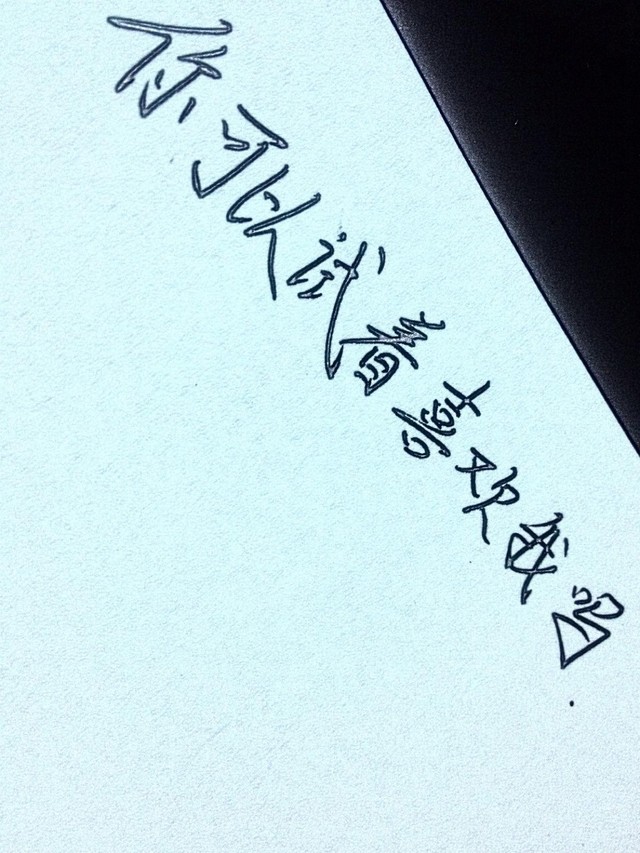 你可以试着喜欢我吗.